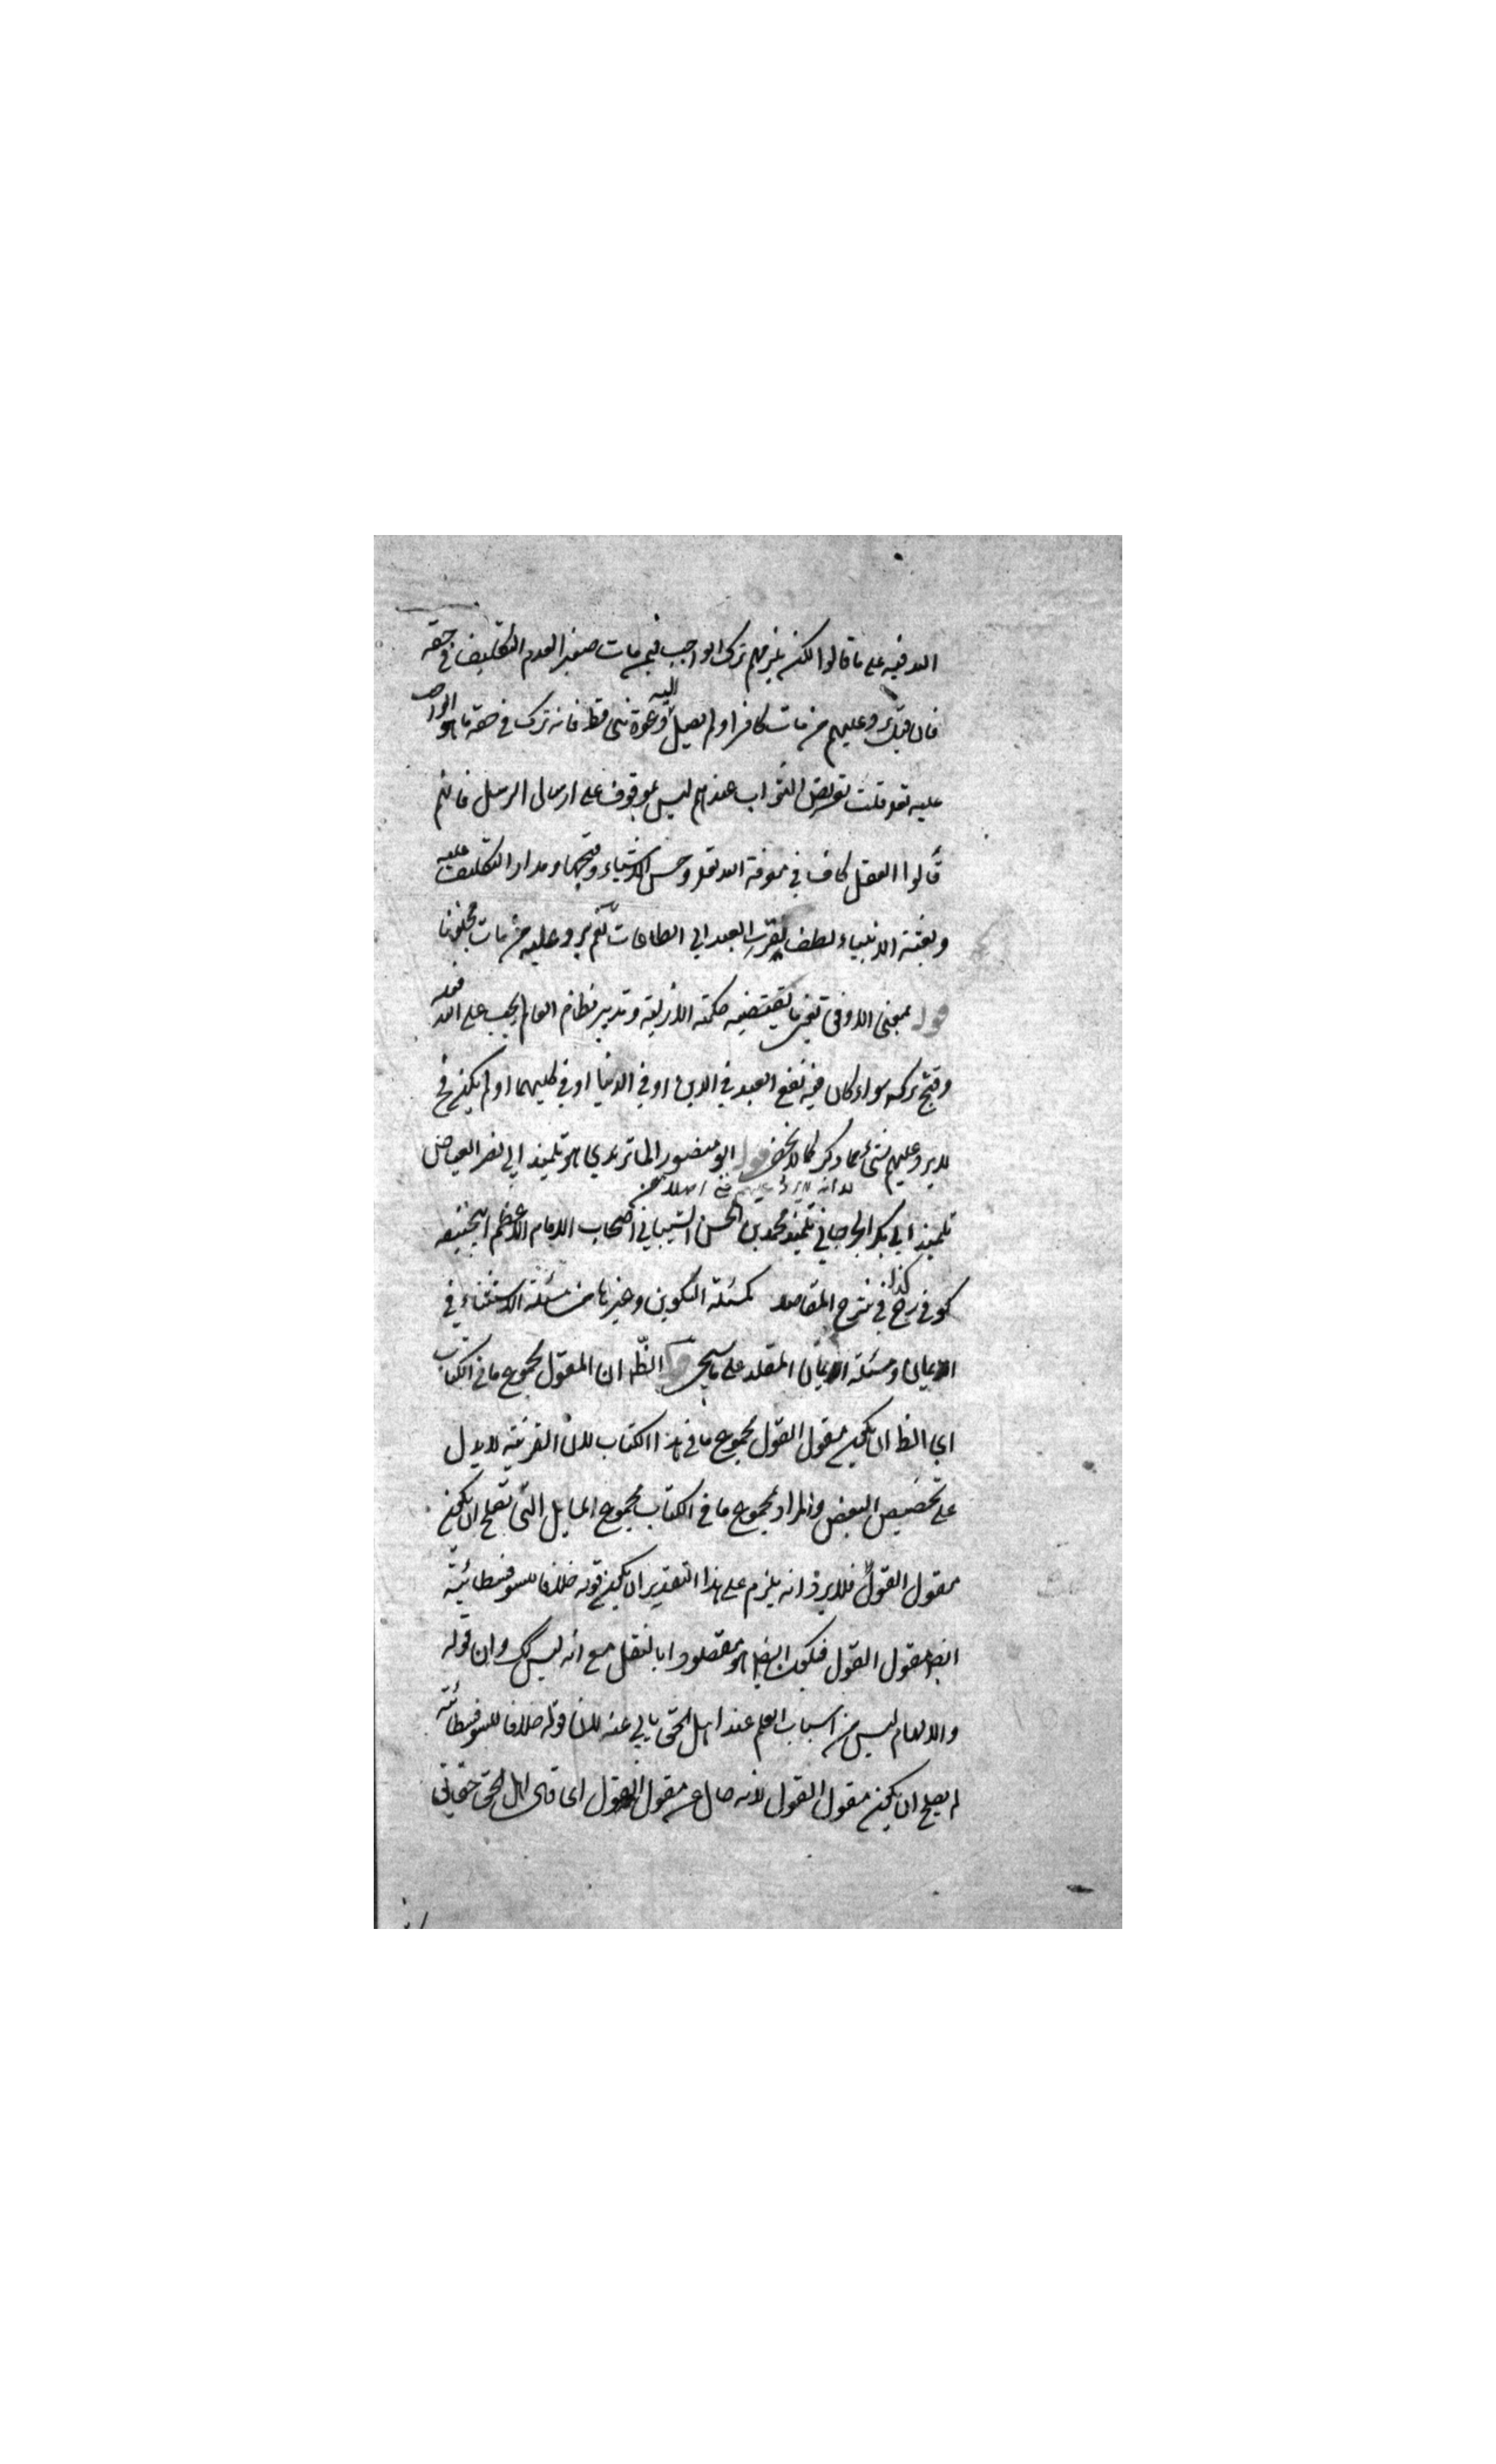 اللدفيه على ما قالوا لكن يلزمهم ترك الواجب فيمن مات صغيرا لعدم التكليف في حقه
فان قيل يرد عليهم من مات كافرا ولم يصل اليه دعوة نبي قط فانه ترك في حقه ما هو الواجب
عليه تعه قلت تعريض الثواب عندهم ليس بموقوف على ارسال الرسل فانهم
قالوا العقل كاف في معرفة الله تعه وحسن الاشياء وقبحها ومدار التكليف عليه
وبعثة الانبياء لطف يقرب العبد الى الطاعات نعم يرد عليه من مات مجنونا
قوله بمعنى الاوفق يعنى ما يقتضيه حكمته الازلية وتدبير نظام العالم يجب على الله فعله
وقبح تركه سواء كان فيه نفع العبد في الدين او في الدنيا او في كليهما او لم يكن فح
لا يرد عليهم شئ مما ذكر كما لا يخفى قوله ابو منصور الماتريدي هو تلميذ ابي نصر العياض
لا انه يرد عليهم
تلميذ ابي بكر الجرجاني تلميذ محمد بن الحسن الشيباني من اصحاب الامام الاعظم ابيحنيفه
كوفي رح كذا في شرح المقاصد كمسئلة التكوين وغيرها من مسئلة الاستثناء في
الايمان ومسئلة الايمان المقلد على ما سيجئ قوله الظ ان المقول مجموع ما في الكتاب
اي الظ ان يكون مقول القول مجموع ما في هذا الكتاب لان القرينة لا يدل
على تخصيص البعض والمراد بمجموع ما في الكتاب مجموع المسايل التي تصلح ان يكون
مقول القول فلا يرد انه يلزم على هذا التقدير ان يكون قوله خلافا للسوفسطائية
ايضا مقول القول فيكون ايضا هو مقصودا بالنقل مع انه ليس كك وان قوله
والالهام ليس من اسباب العلم عند اهل الحق يابى عنه لان قوله خلافا للسوفسطائية
لم يصلح ان يكون مقول القول لانه حال عن مقول القول اى قال اهل الحق حقائق